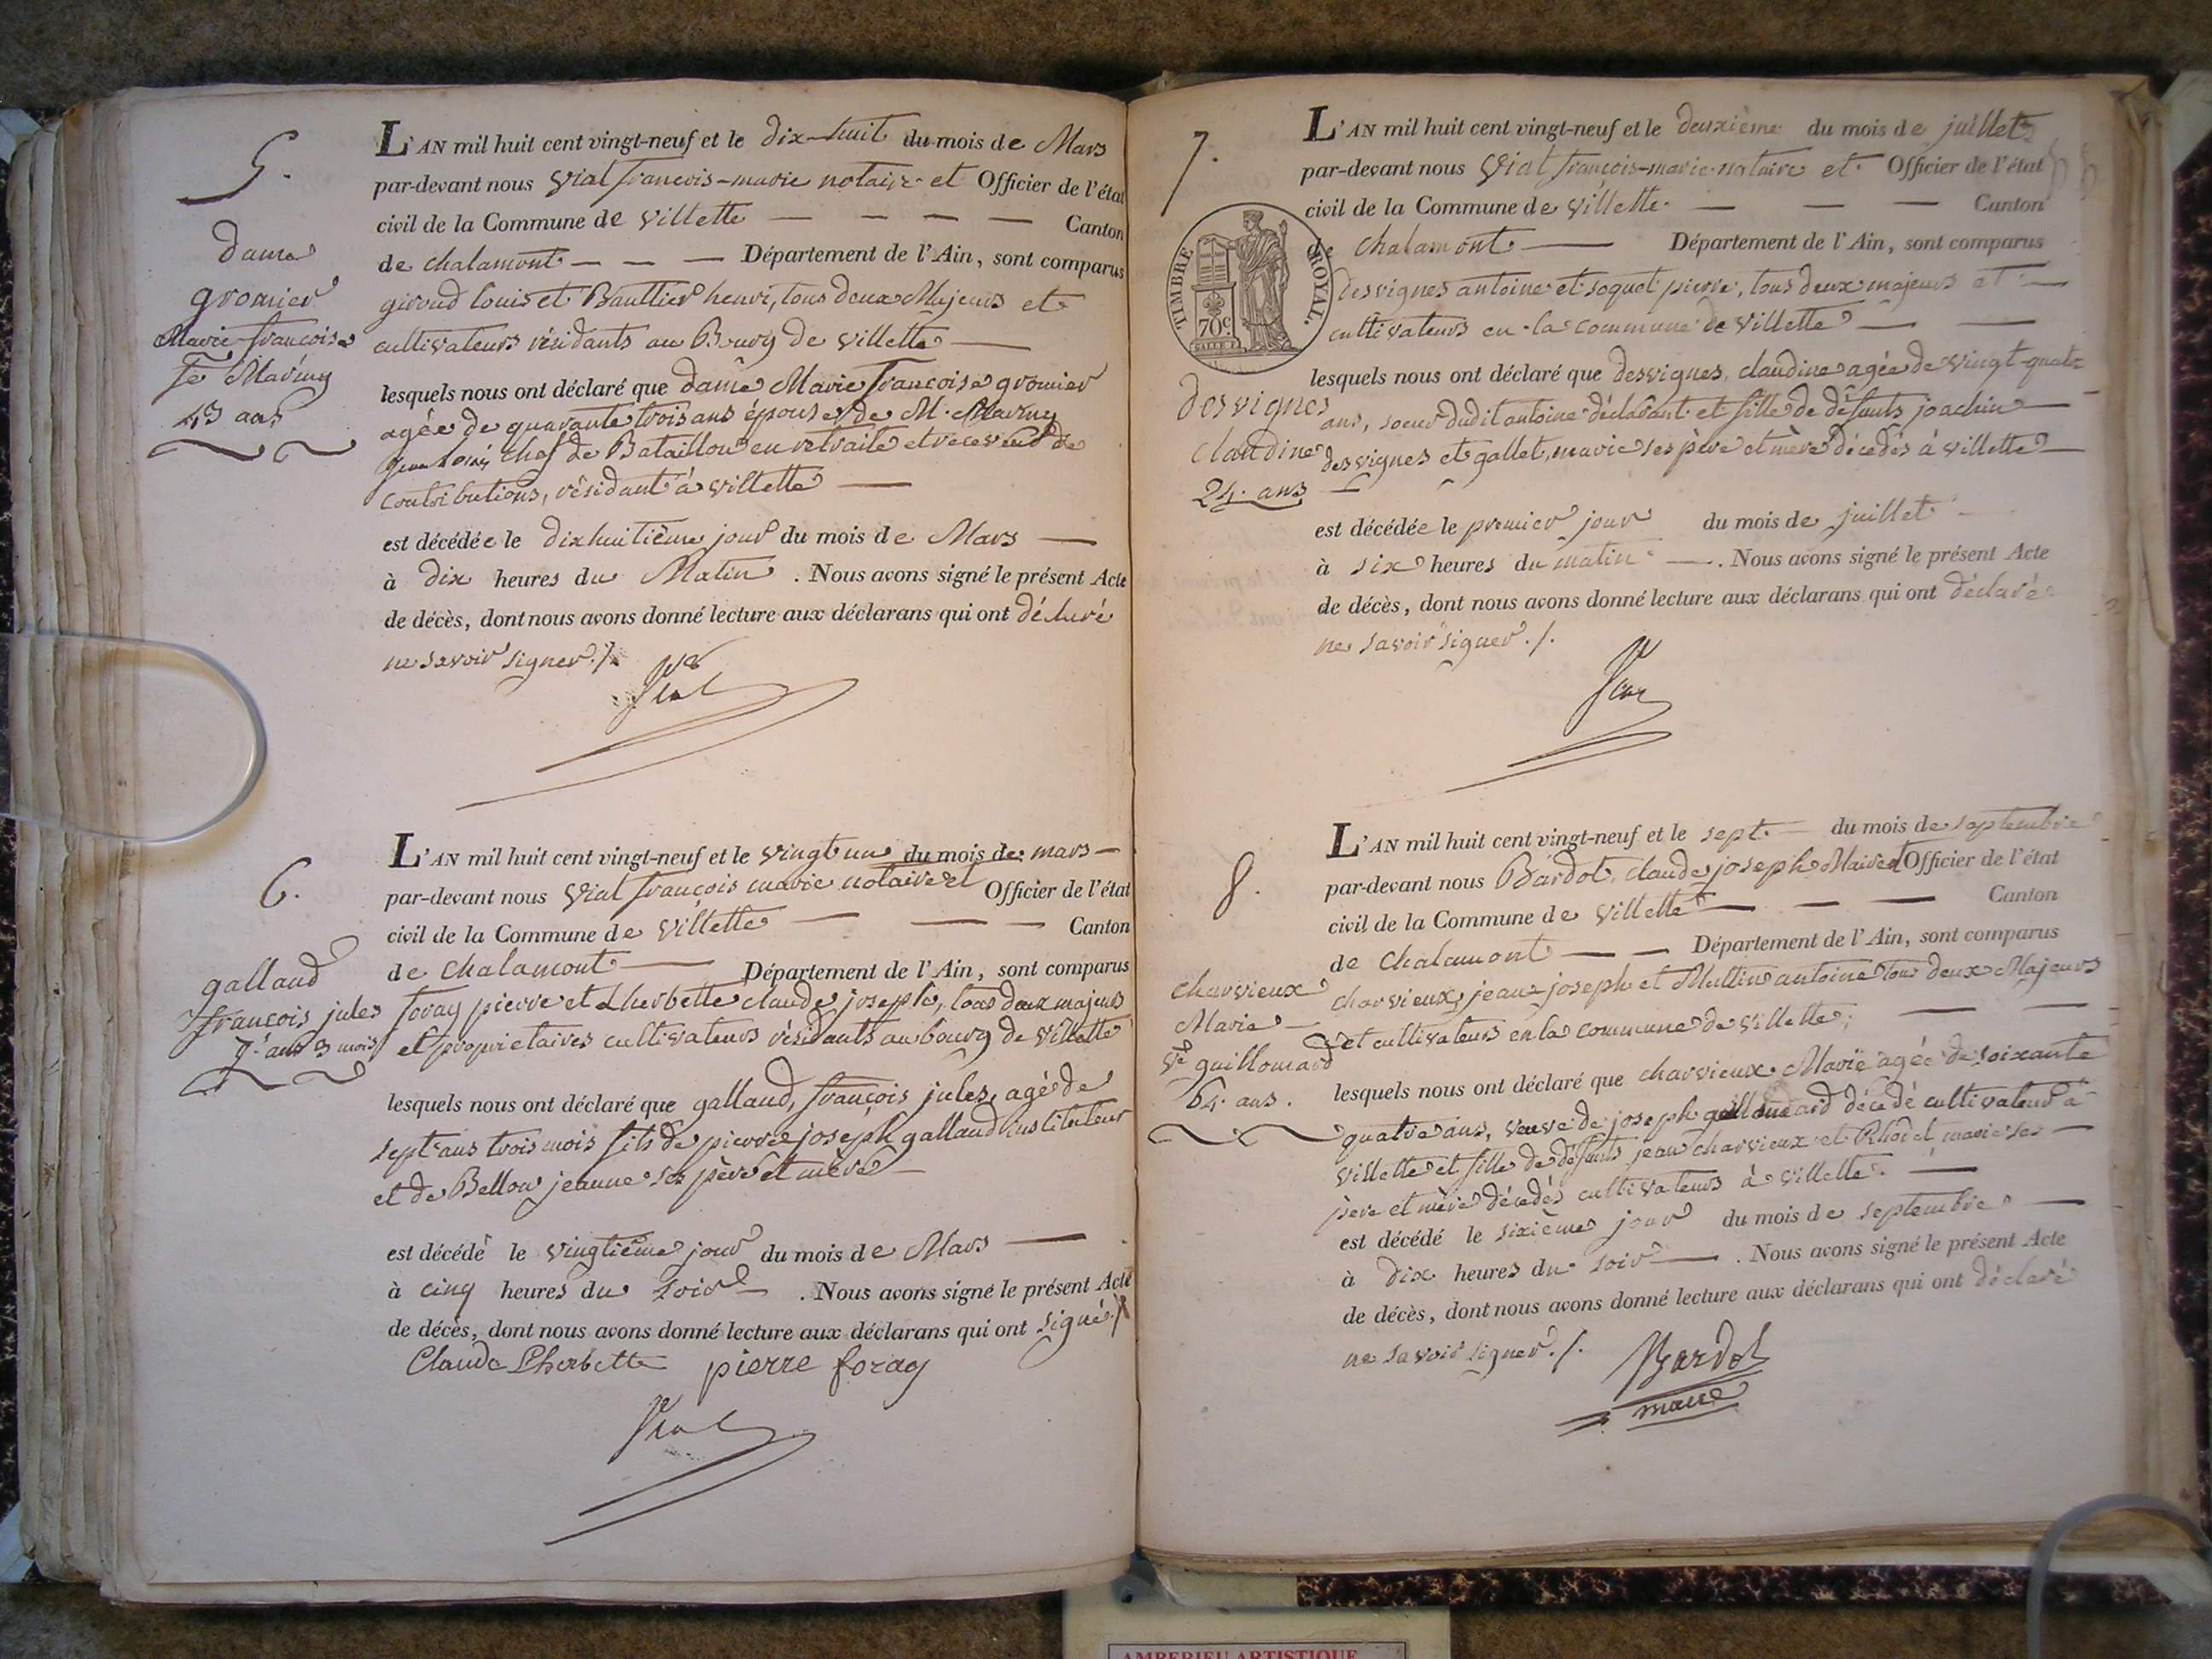 5.
dame
gromier
Marie françoise
fe Marmy
43 ans
L'AN mil huit cent vingt-neuf et le dix-huit du mois de Mars
par-devant nous Vial françois-marie notaire et Officier de l'état
civil de la Commune de Villette — — — — Canton
de chalamont — — — Département de l'Ain, sont comparus
giroud louis et Bauttier henri, tous deux Majeurs et
cultivateurs résidants au Bourg de Villette —
lesquels nous ont déclaré que dame Marie françoise gromier
agée de quarante trois ans épouse de M. Marmy
chef de Bataillon en retraite et receveur de
contributions, résidant à Villette —
est décédée le dixhuitième jour du mois de Mars —
à dix heures du Matin. Nous avons signé le présent Acte
de décès, dont nous avons donné lecture aux déclarans qui ont déclaré
ne savoir signer ./.
Vial
6.
galland
françois jules
7. ans 3 mois
L'AN mil huit cent vingt-neuf et le vingt un du mois de mars —
par-devant nous Vial françois marie notaire et Officier de l'état
civil de la Commune de Villette — — — Canton
de chalamont — Département de l'Ain, sont comparus
foray pierre et Lherbette claude joseph, tous deux majeurs
et propriétaires cultivateurs résidants au bourg de Villette
lesquels nous ont déclaré que galland, françois jules, agé de
sept ans trois mois fils de pierre joseph galland instituteur
et de Bellow jeanne ses père et mère —
est décédé le vingtième jour du mois de Mars —
à cinq heures du soir —. Nous avons signé le présent Acte
de décès, dont nous avons donné lecture aux déclarans qui ont signé ./.
Claude Lherbette pierre foray
Vial
7.
TIMBRE ROYAL.
70c.
desvignes
claudine
24. ans
L'AN mil huit cent vingt-neuf et le deuxième du mois de juillet
par-devant nous Vial françois-marie notaire et Officier de l'état
civil de la Commune de Villette — — — Canton
de chalamont — Département de l'Ain, sont comparus
desvignes antoine et soquet pierre, tous deux majeurs et —
cultivateurs en la commune de Villette — —
lesquels nous ont déclaré que desvignes, claudine agée de vingt-quatre
ans, soeur dudit antoine déclarant et fille de défunts joachin —
desvignes et gallet, marie ses père et mère décédés à Villette —
—
est décédée le premier jour du mois de juillet —
à six heures du matin —. Nous avons signé le présent Acte
de décès, dont nous avons donné lecture aux déclarans qui ont déclaré
ne savoir signer ./.
Vial
8.
charvieux
Marie —
Ve guillomard
64. ans.
L'AN mil huit cent vingt-neuf et le sept — du mois de septembre
par-devant nous Bardot, claude joseph Maire et Officier de l'état
civil de la Commune de Villette — — — Canton
de Chalamont — — Département de l'Ain, sont comparus
charvieux, jean joseph et Mullin antoine tous deux Majeurs
et cultivateurs en la commune de Villette; — —
lesquels nous ont déclaré que charvieux Marie agée de soixante
quatre ans, veuve de joseph guillomard décédé cultivateur à
Villette et fille de défunts jean charvieux et Rhodet marie ses —
père et mère décédés cultivateurs à Villette. —
est décédé le sixième jour du mois de septembre —
à dix heures du soir —. Nous avons signé le présent Acte
de décès, dont nous avons donné lecture aux déclarans qui ont déclaré
ne savoir signer ./.
Bardot
maire
AMBERIEU ARTISTIQUE